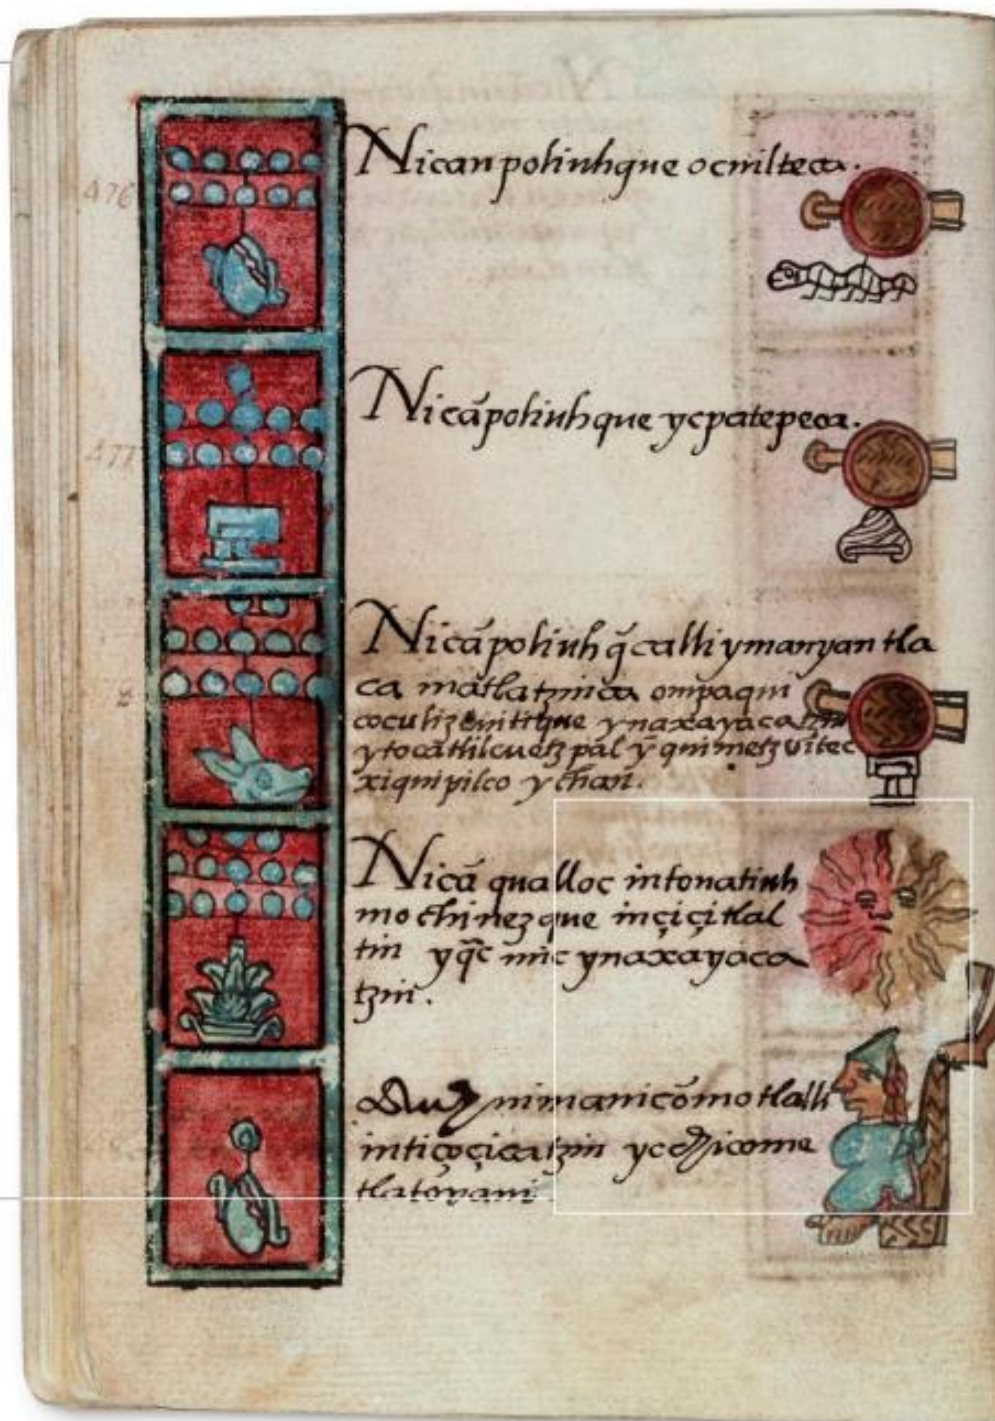 476
Nican poliuhque ocuilteca.
477
Nicā poliuhque ycpatepeca.
Nicā poliuh q̄ calli ymanyan tla
ca matlatzinca ompa qui
cocoliz ynaxayacatzin
ytoca tlilcuetzpal ȳ quimetzvitec
xiquipilco ychan.
8
Nicā qualloc in tonatiuh
mochi nezque in çiçitlal
tin yq̄c mic ynaxayaca
tzin.
Auh niman icōmotlalli
in tiçoçicatzin yc chicome
tlatoyani